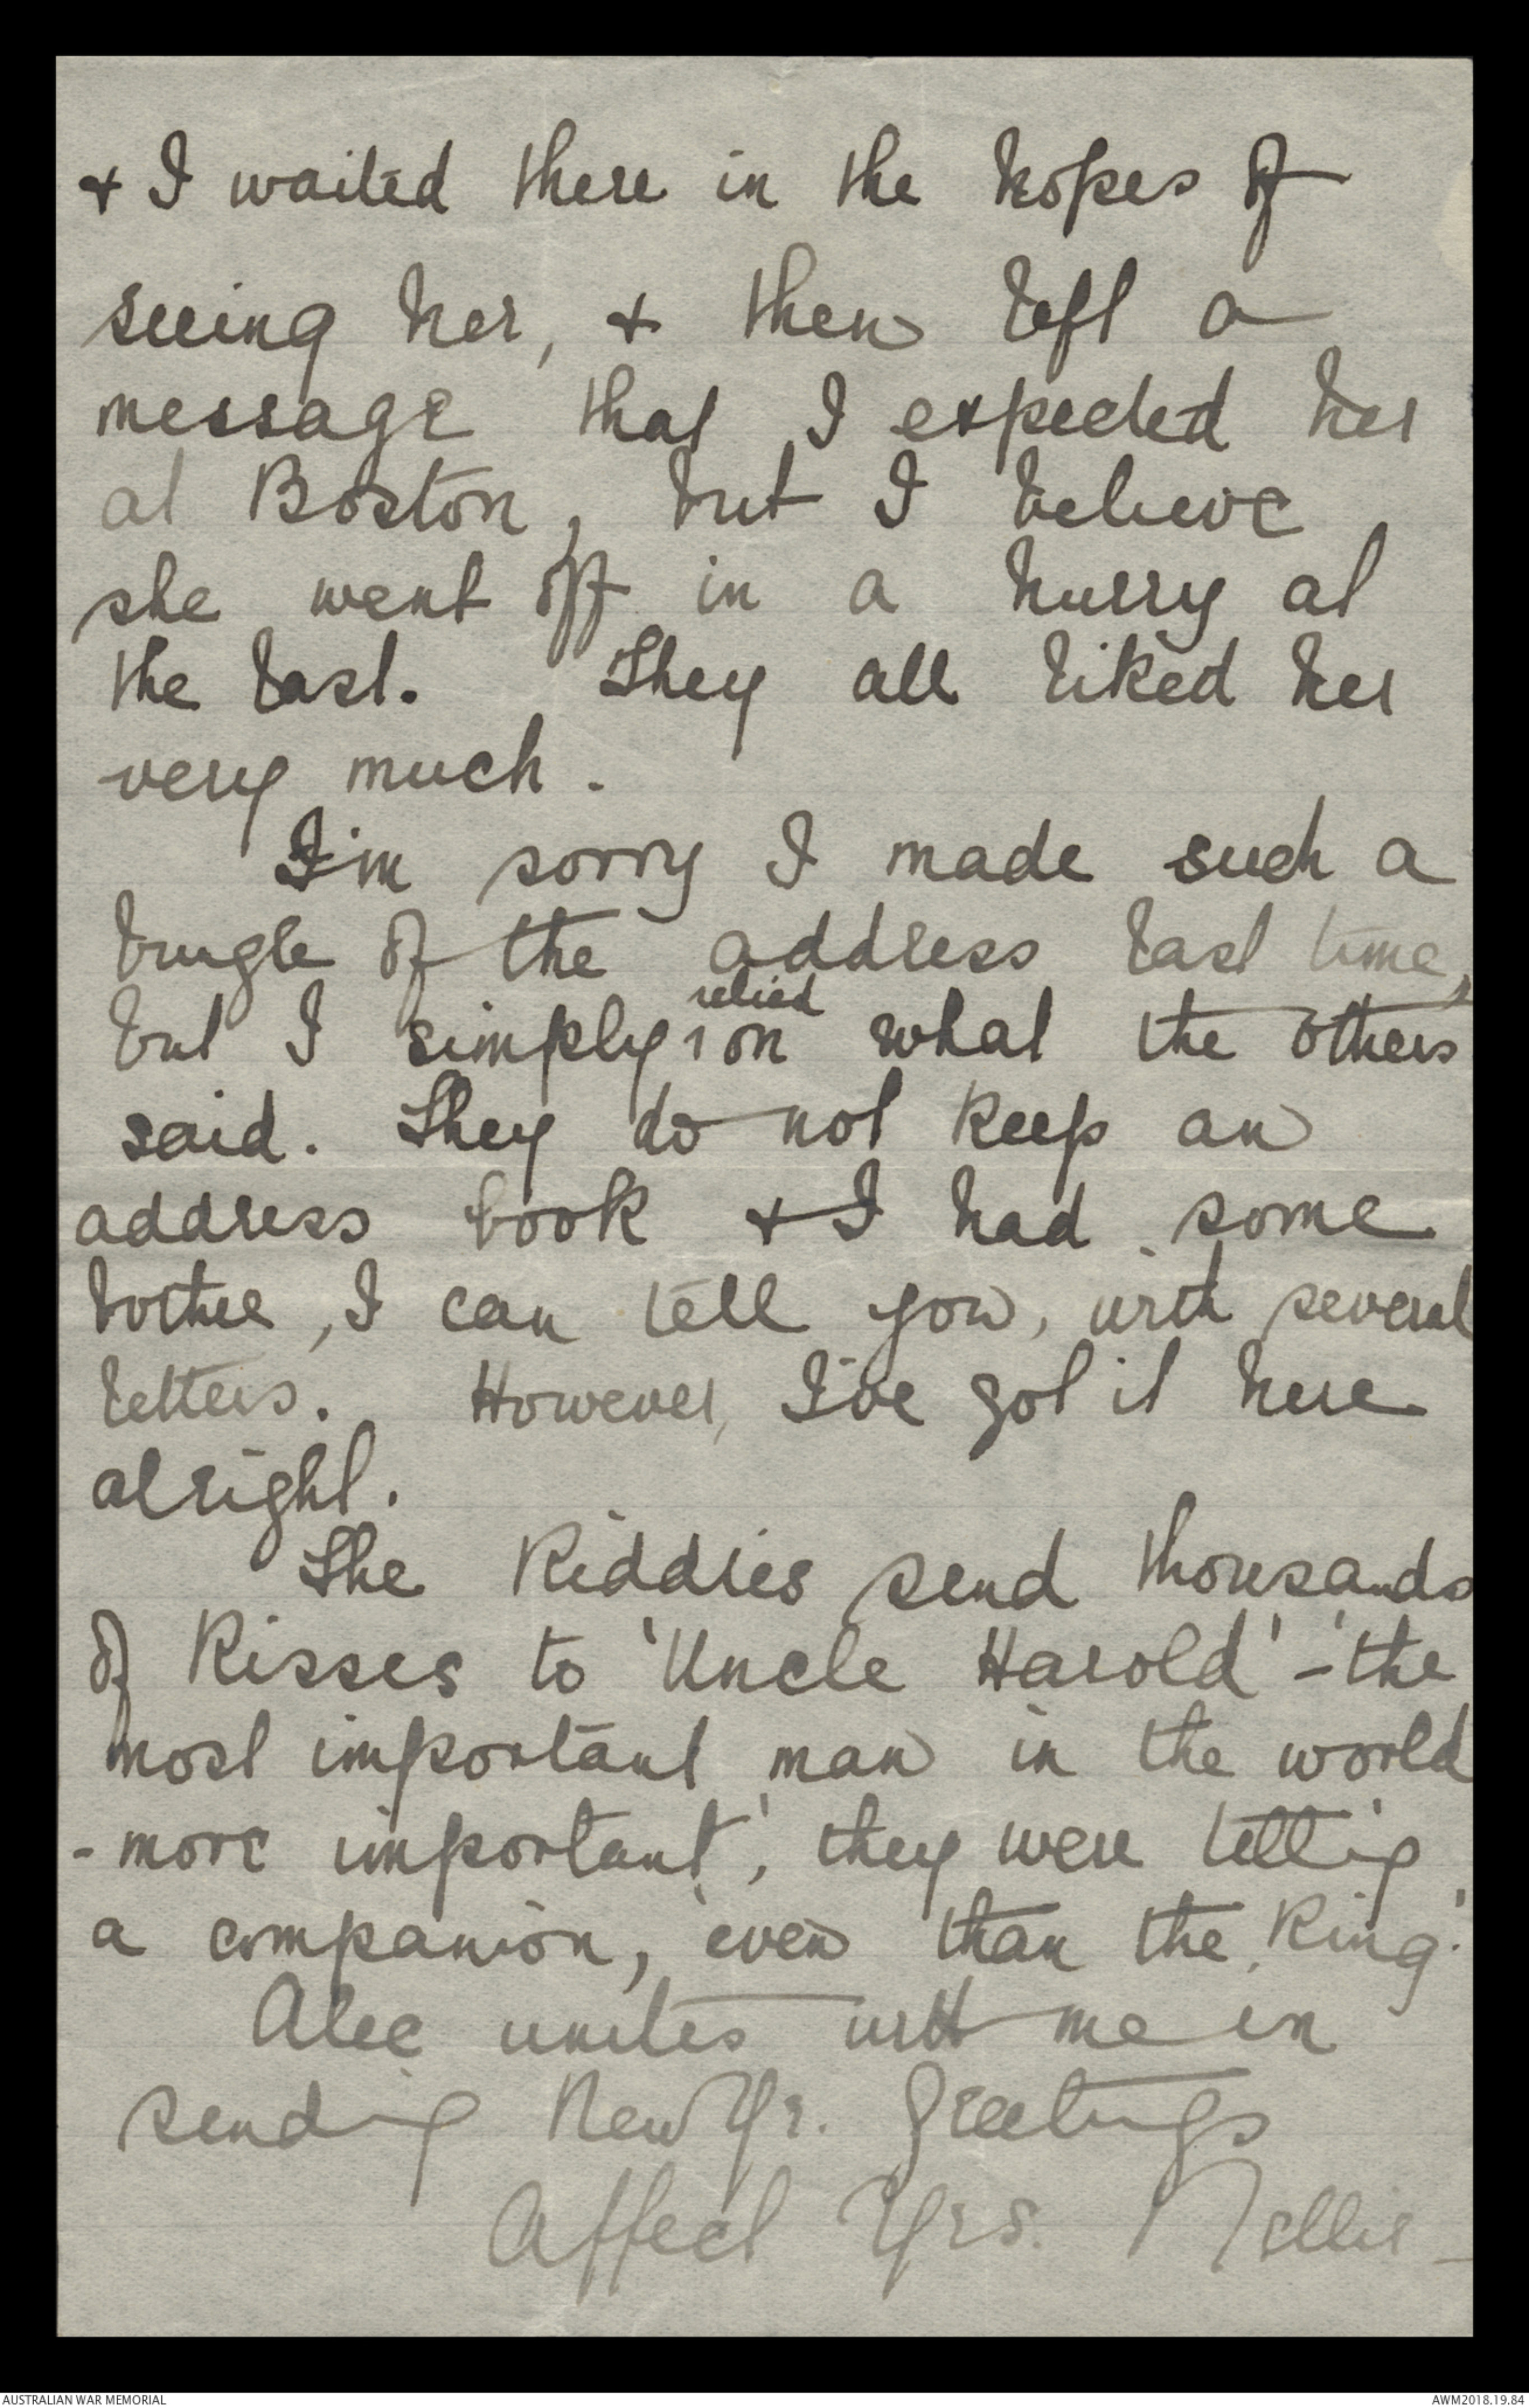 & I waited there in the hopes of
seeing her, & then left a
message that I expected her
at Boston, but I believe
she went off in a hurry at
the last. They all liked her
very much.
I'm sorry I made such a
bungle of the address last time,
relied
but I simply on what the others
said. They do not keep an
address book & I had some
bother, I can tell you, with several
letters. However, I've got it here
alright.
The Kiddies send thousands
of kisses to 'Uncle Harold' - 'the
most important man in the world
- more important', they were telling
a companion, 'even than the King.'
Alec unites with me in
sending New Yr. Greetings
Affect Yrs. Nellie
AUSTRALIAN WAR MEMORIAL
AWM2018.19.84